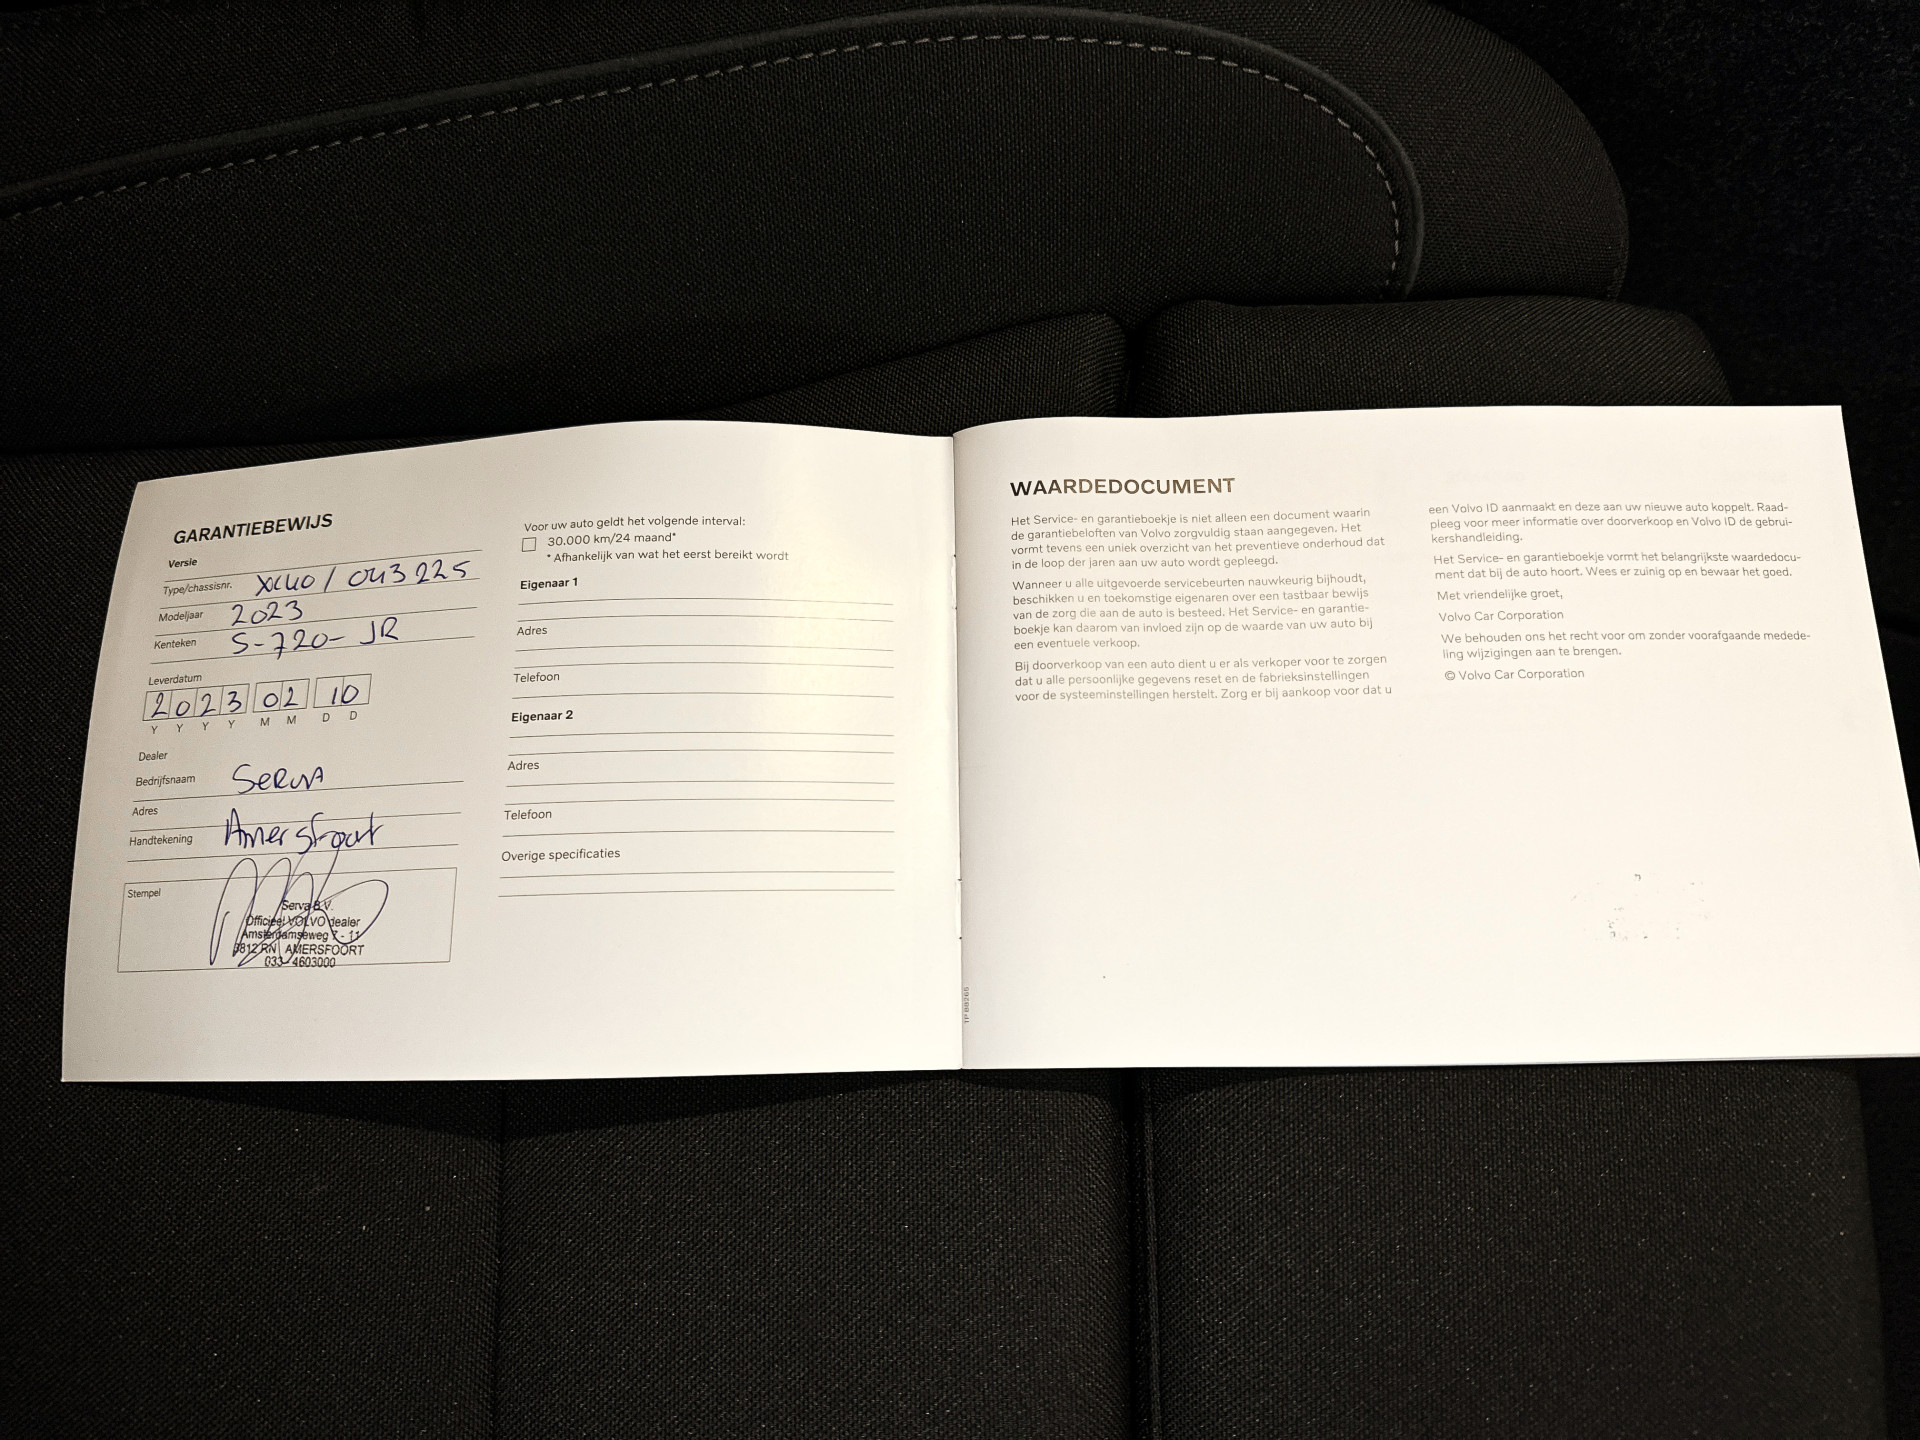 GARANTIEBEWIJS
Versie
Type/chassisnr. XC40 / 043225
Modeljaar 2023
Kenteken S-720-JR
Leverdatum
2 0 2 3 0 2 1 0
Y Y Y Y M M D D
Dealer
Bedrijfsnaam Serva
Adres
Handtekening Amersfoort
Stempel
Serva B.V.
Officieel VOLVO dealer
Amsterdamseweg 7 - 11
3812 RN AMERSFOORT
033-4603000
Voor uw auto geldt het volgende interval:
30.000 km/24 maand*
* Afhankelijk van wat het eerst bereikt wordt
Eigenaar 1
Adres
Telefoon
Eigenaar 2
Adres
Telefoon
Overige specificaties
TP 88265
WAARDEDOCUMENT
Het Service- en garantieboekje is niet alleen een document waarin
de garantiebeloften van Volvo zorgvuldig staan aangegeven. Het
vormt tevens een uniek overzicht van het preventieve onderhoud dat
in de loop der jaren aan uw auto wordt gepleegd.
Wanneer u alle uitgevoerde servicebeurten nauwkeurig bijhoudt,
beschikken u en toekomstige eigenaren over een tastbaar bewijs
van de zorg die aan de auto is besteed. Het Service- en garantie-
boekje kan daarom van invloed zijn op de waarde van uw auto bij
een eventuele verkoop.
Bij doorverkoop van een auto dient u er als verkoper voor te zorgen
dat u alle persoonlijke gegevens reset en de fabrieksinstellingen
voor de systeeminstellingen herstelt. Zorg er bij aankoop voor dat u
een Volvo ID aanmaakt en deze aan uw nieuwe auto koppelt. Raad-
pleeg voor meer informatie over doorverkoop en Volvo ID de gebrui-
kershandleiding.
Het Service- en garantieboekje vormt het belangrijkste waardedocu-
ment dat bij de auto hoort. Wees er zuinig op en bewaar het goed.
Met vriendelijke groet,
Volvo Car Corporation
We behouden ons het recht voor om zonder voorafgaande medede-
ling wijzigingen aan te brengen.
© Volvo Car Corporation